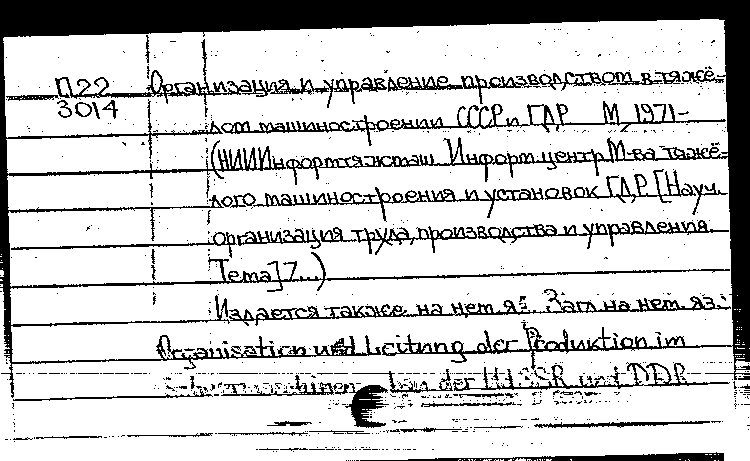 П22 Организация и управление производством в тяжё-
3014
лом машиностроении СССР и ГДР М, 1971-
(НИИИнформтяжмаш Информ.центр М-ва тяжё-
лого машиностроения и установок ГДР. [Науч.
организация труда, производства и управления.
Тема] 7...)
Издается также на нем яз. Загл на нем яз.:
Organisation und Leitung der Produktion im
Schwermaschinen- bau der UdSSR und DDR